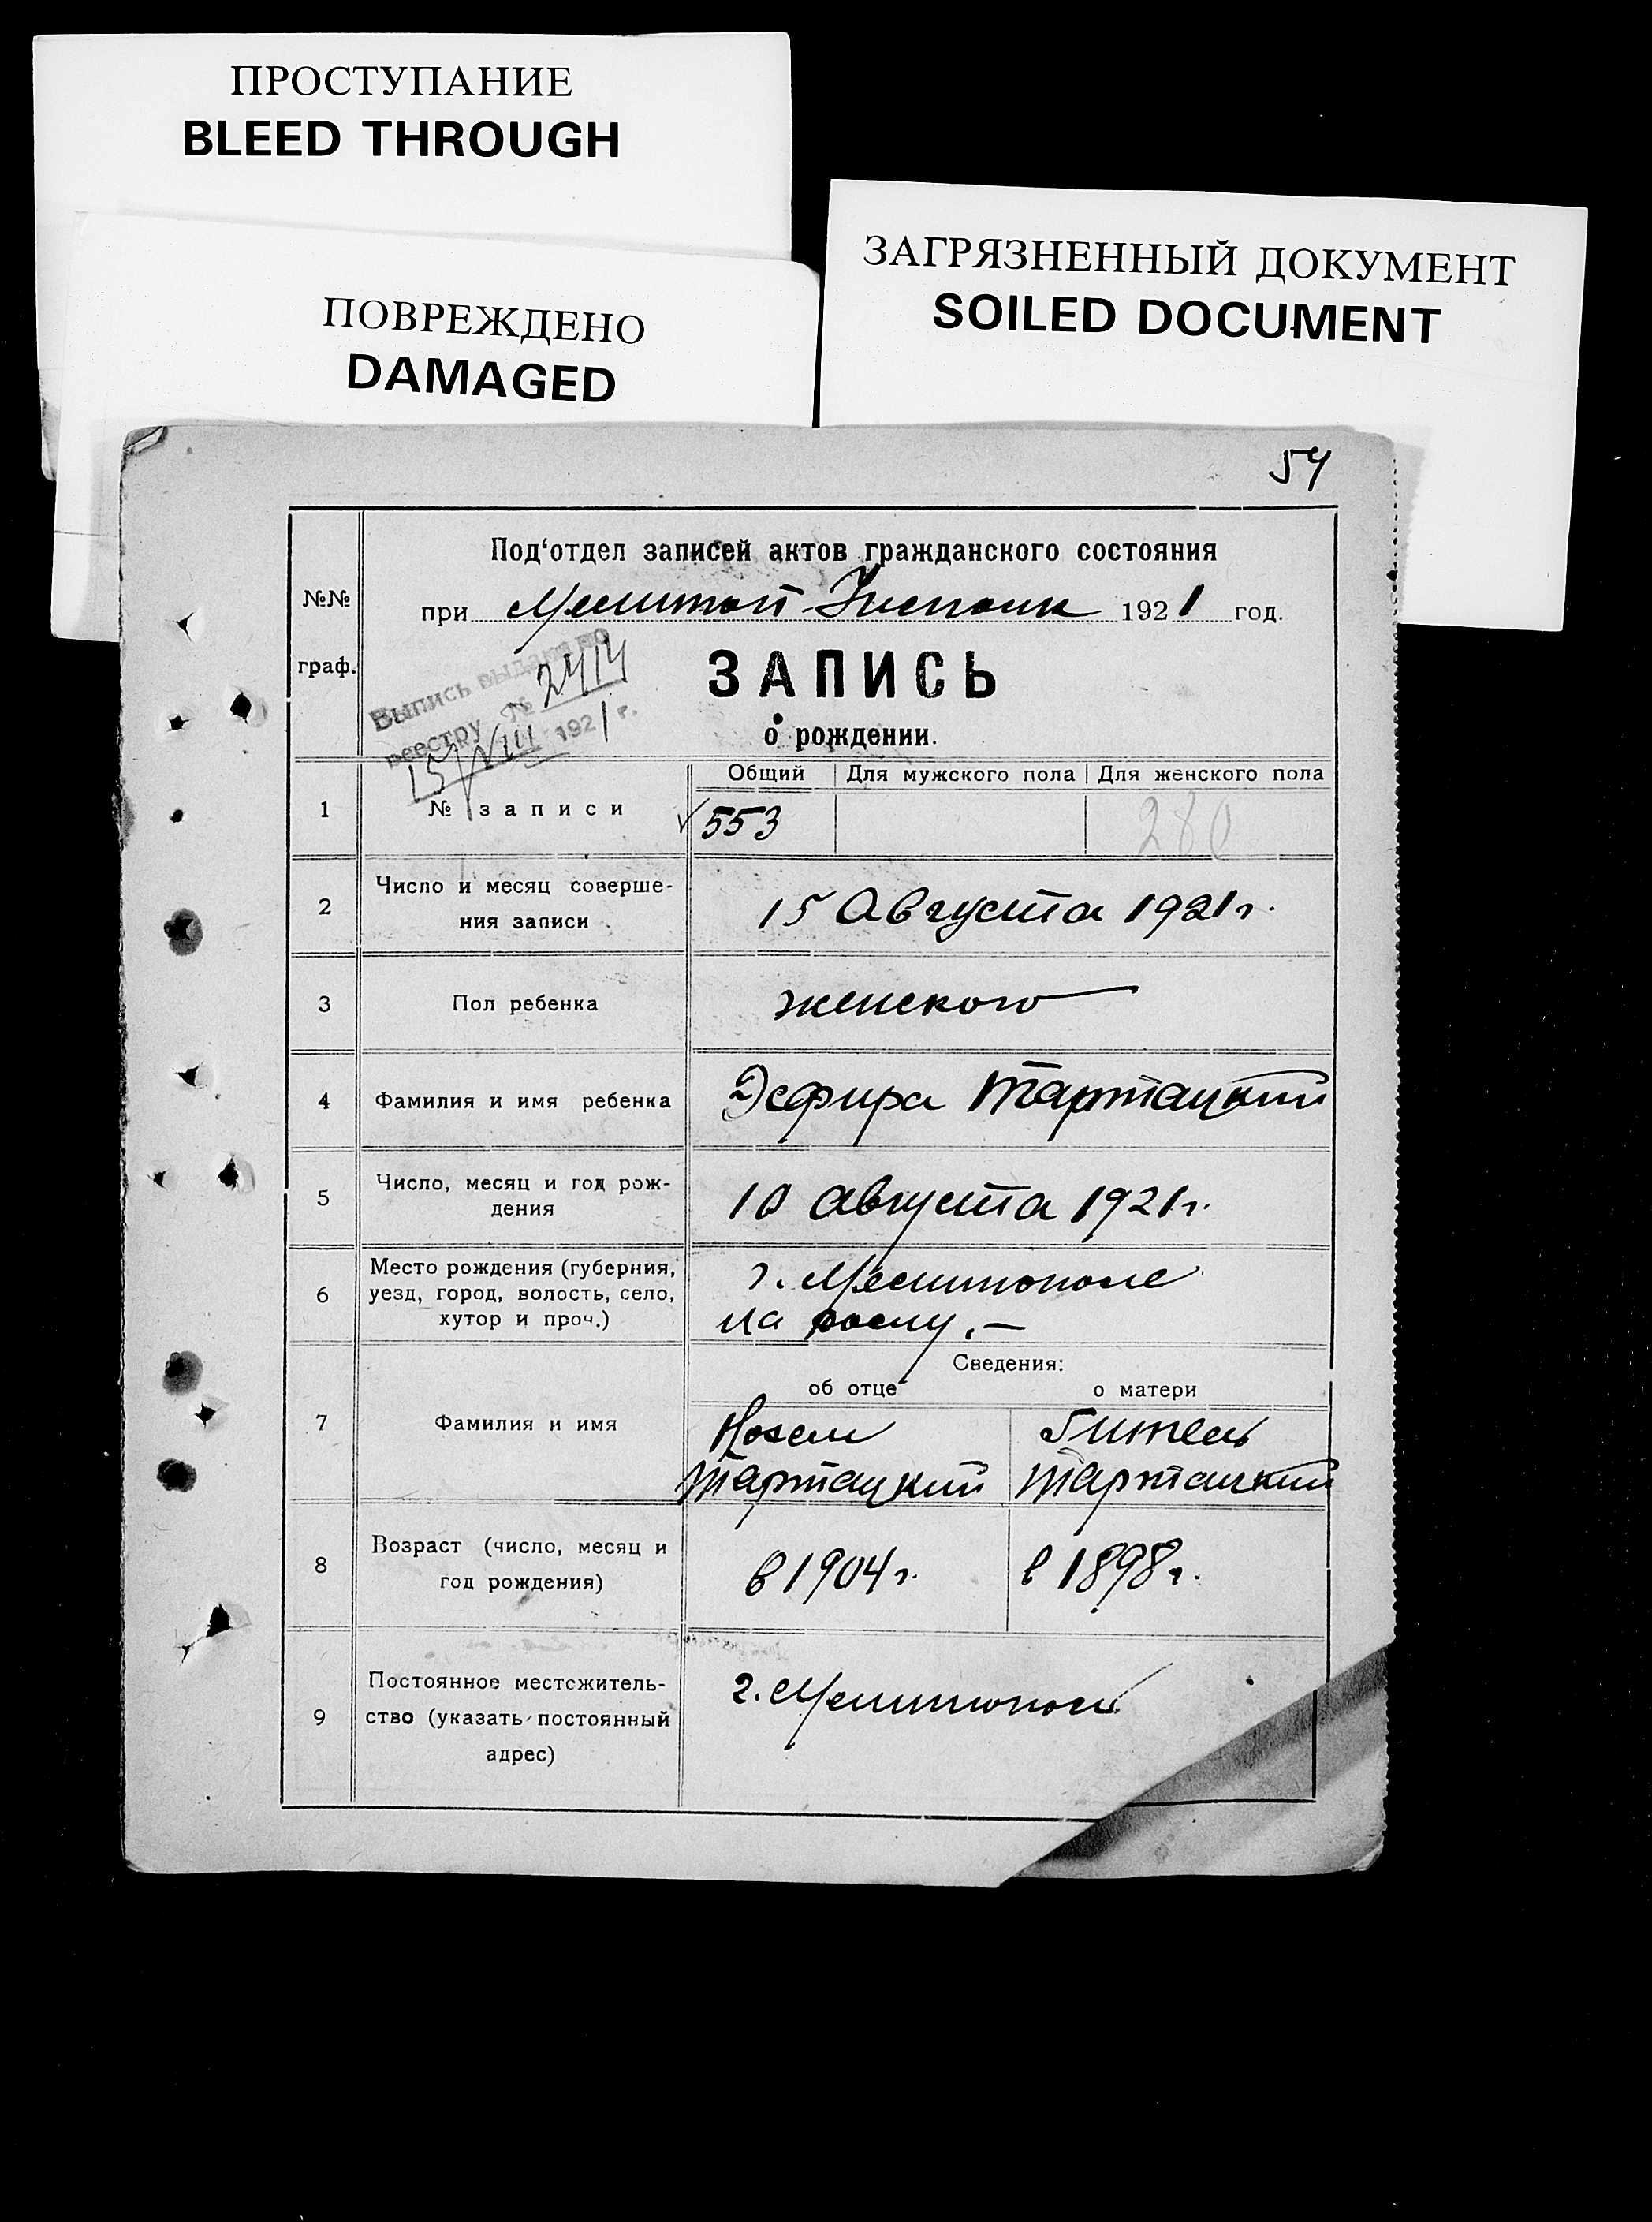 ПРОСТУПАНИЕ
BLEED THROUGH
ПОВРЕЖДЕНО
DAMAGED
ЗАГРЯЗНЕННЫЙ ДОКУМЕНТ
SOILED DOCUMENT
54
№№
граф.
Под‘отдел записей актов гражданского состояния
при 1921 год.
ЗАПИСЬ
о рождении.
Выпись выдана по
реестру № 2414
15/VIII 1921 г.
Общий Для мужского пола Для женского пола
1 № записи 553 280
2 Число и месяц соверше-
ния записи
15 Августа 1921 г.
3 Пол ребенка женского
4 Фамилия и имя ребенка Эсфира Тартацкий
5 Число, месяц и год рож-
дения
10 августа 1921 г.
6 Место рождения (губерния,
уезд, город, волость, село,
хутор и проч.)
г. Мелитополе
на
Сведения:
об отце о матери
7 Фамилия и имя
Тартацкий Тартацкий
8 Возраст (число, месяц и
год рождения)
в 1904 г. в 1898 г.
9 Постоянное местожитель-
ство (указать постоянный
адрес)
г. Мелитополь